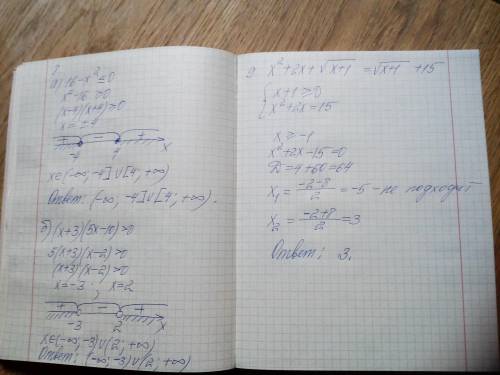 8
а) 16-x² ≤ 0
x²-16 ≥ 0
(x-4)(x+4) ≥ 0
x = ± 4
+ - +
-4 4 x
x∈(-∞; -4]∪[4; +∞)
Ответ: (-∞; -4]∪[4; +∞).
б) (x+3)(5x-10)>0
5(x+3)(x-2)>0
(x+3)(x-2)>0
x=-3; x=2
+ - +
-3 2 x
x∈(-∞; -3)∪(2; +∞)
Ответ: (-∞; -3)∪(2; +∞)
9. x²+2x+√x+1 = √x+1 +15
{ x+1 ≥ 0
x²+2x=15
x ≥ -1
x²+2x-15=0
D=4+60=64
x₁ = -2-8/2 = -5 - не подходит
x₂ = -2+8/2 = 3
Ответ: 3.